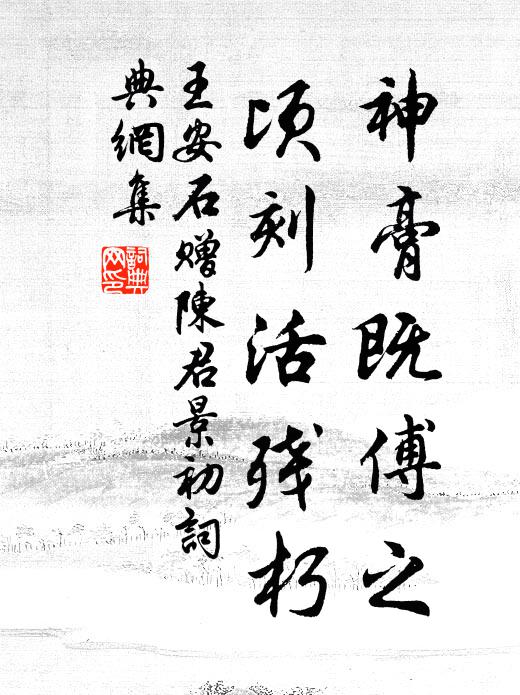 神膏既傅之
頃刻活残朽
王安石赠陳君景初詞
典網集
詞典网印